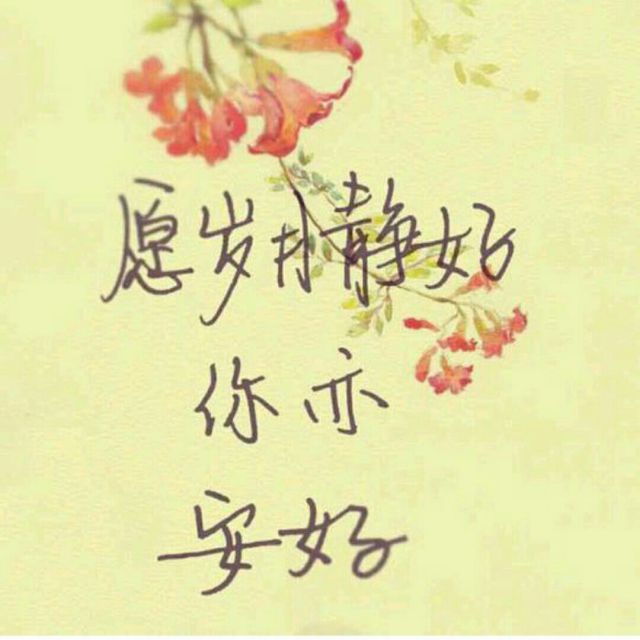 愿岁月静好
你亦
安好